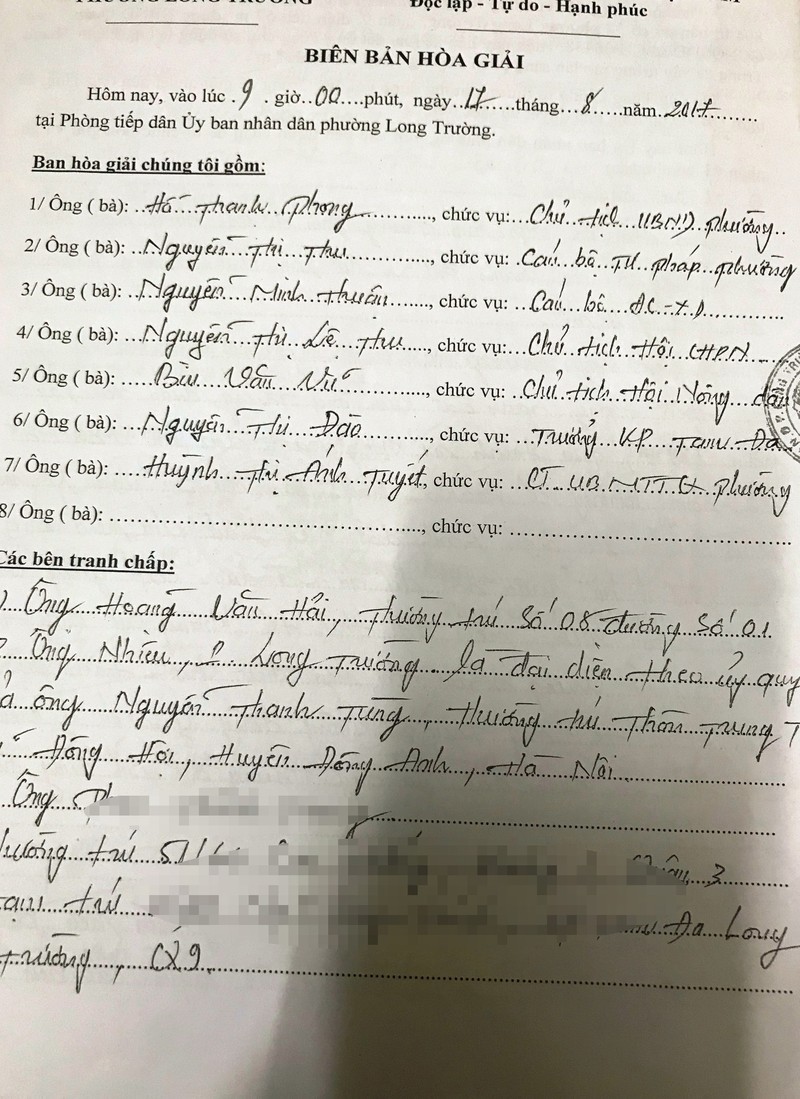 PHƯỜNG LONG TRƯỜNG
Độc lập - Tự do - Hạnh phúc
BIÊN BẢN HÒA GIẢI
Hôm nay, vào lúc .9 . giờ..00....phút, ngày..17.....tháng...8.....năm..2017........
tại Phòng tiếp dân Ủy ban nhân dân phường Long Trường.
Ban hòa giải chúng tôi gồm:
1/ Ông ( bà): ..Hồ Thanh Phong............., chức vụ:...Chủ tịch UBND phường..
2/ Ông ( bà): ..Nguyễn Thị Thu..............., chức vụ: ..Cán bộ Tư pháp phường
3/ Ông ( bà): ..Nguyễn Minh Thuấn......, chức vụ: ..Cán bộ ĐC-XD..............
4/ Ông ( bà): ...Nguyễn Thị Lệ Thu......, chức vụ:...Chủ tịch Hội LHPN....
5/ Ông ( bà): .....Bùi Văn ..............., chức vụ: ..Chủ tịch Hội Nông dân
6/ Ông ( bà): ....Nguyễn Thị Đào..........., chức vụ: ..Trưởng KP Tam Đa
7/ Ông ( bà): ....Huỳnh Thị Ánh Tuyết, chức vụ: ..CT UBMTTQ phường
8/ Ông ( bà): ......................................................, chức vụ: ................................................
Các bên tranh chấp:
Ông Hoàng Văn Hải, Thường trú số 08 đường số 01
Ông Nhiêu, P Long Trường, là đại diện theo ủy quy
ông Nguyễn Thanh Tùng, thường trú Thôn Trung T
Đông Hội, Huyện Đông Anh, Hà Nội
Ông
trú 51/
3
trú Đa Long
Trường, Q9